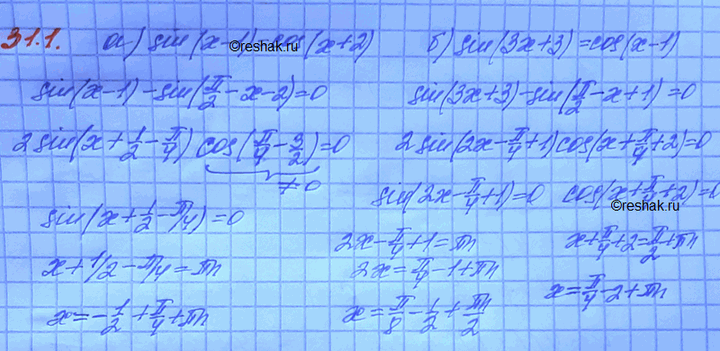 31.1. а) sin(x-1)=cos(x+2) б) sin(3x+3)=cos(x-1)
©reshak.ru
sin(x-1)-sin(π/2-x-2)=0 sin(3x+3)-sin(π/2-x+1)=0
2sin(x+1/2-π/4) cos(π/4-3/2)=0 2sin(2x-π/4+1)cos(x+π/4+2)=0
≠0
sin(2x-π/4+1)=0 cos(x+π/4+2)=0
©reshak.ru
sin(x+1/2-π/4)=0
2x-π/4+1=πn x+π/4+2=π/2+πn
x+1/2-π/4=πn 2x=π/4-1+πn
x=π/4-2+πn
x=-1/2+π/4+πn x=π/8-1/2+πn/2